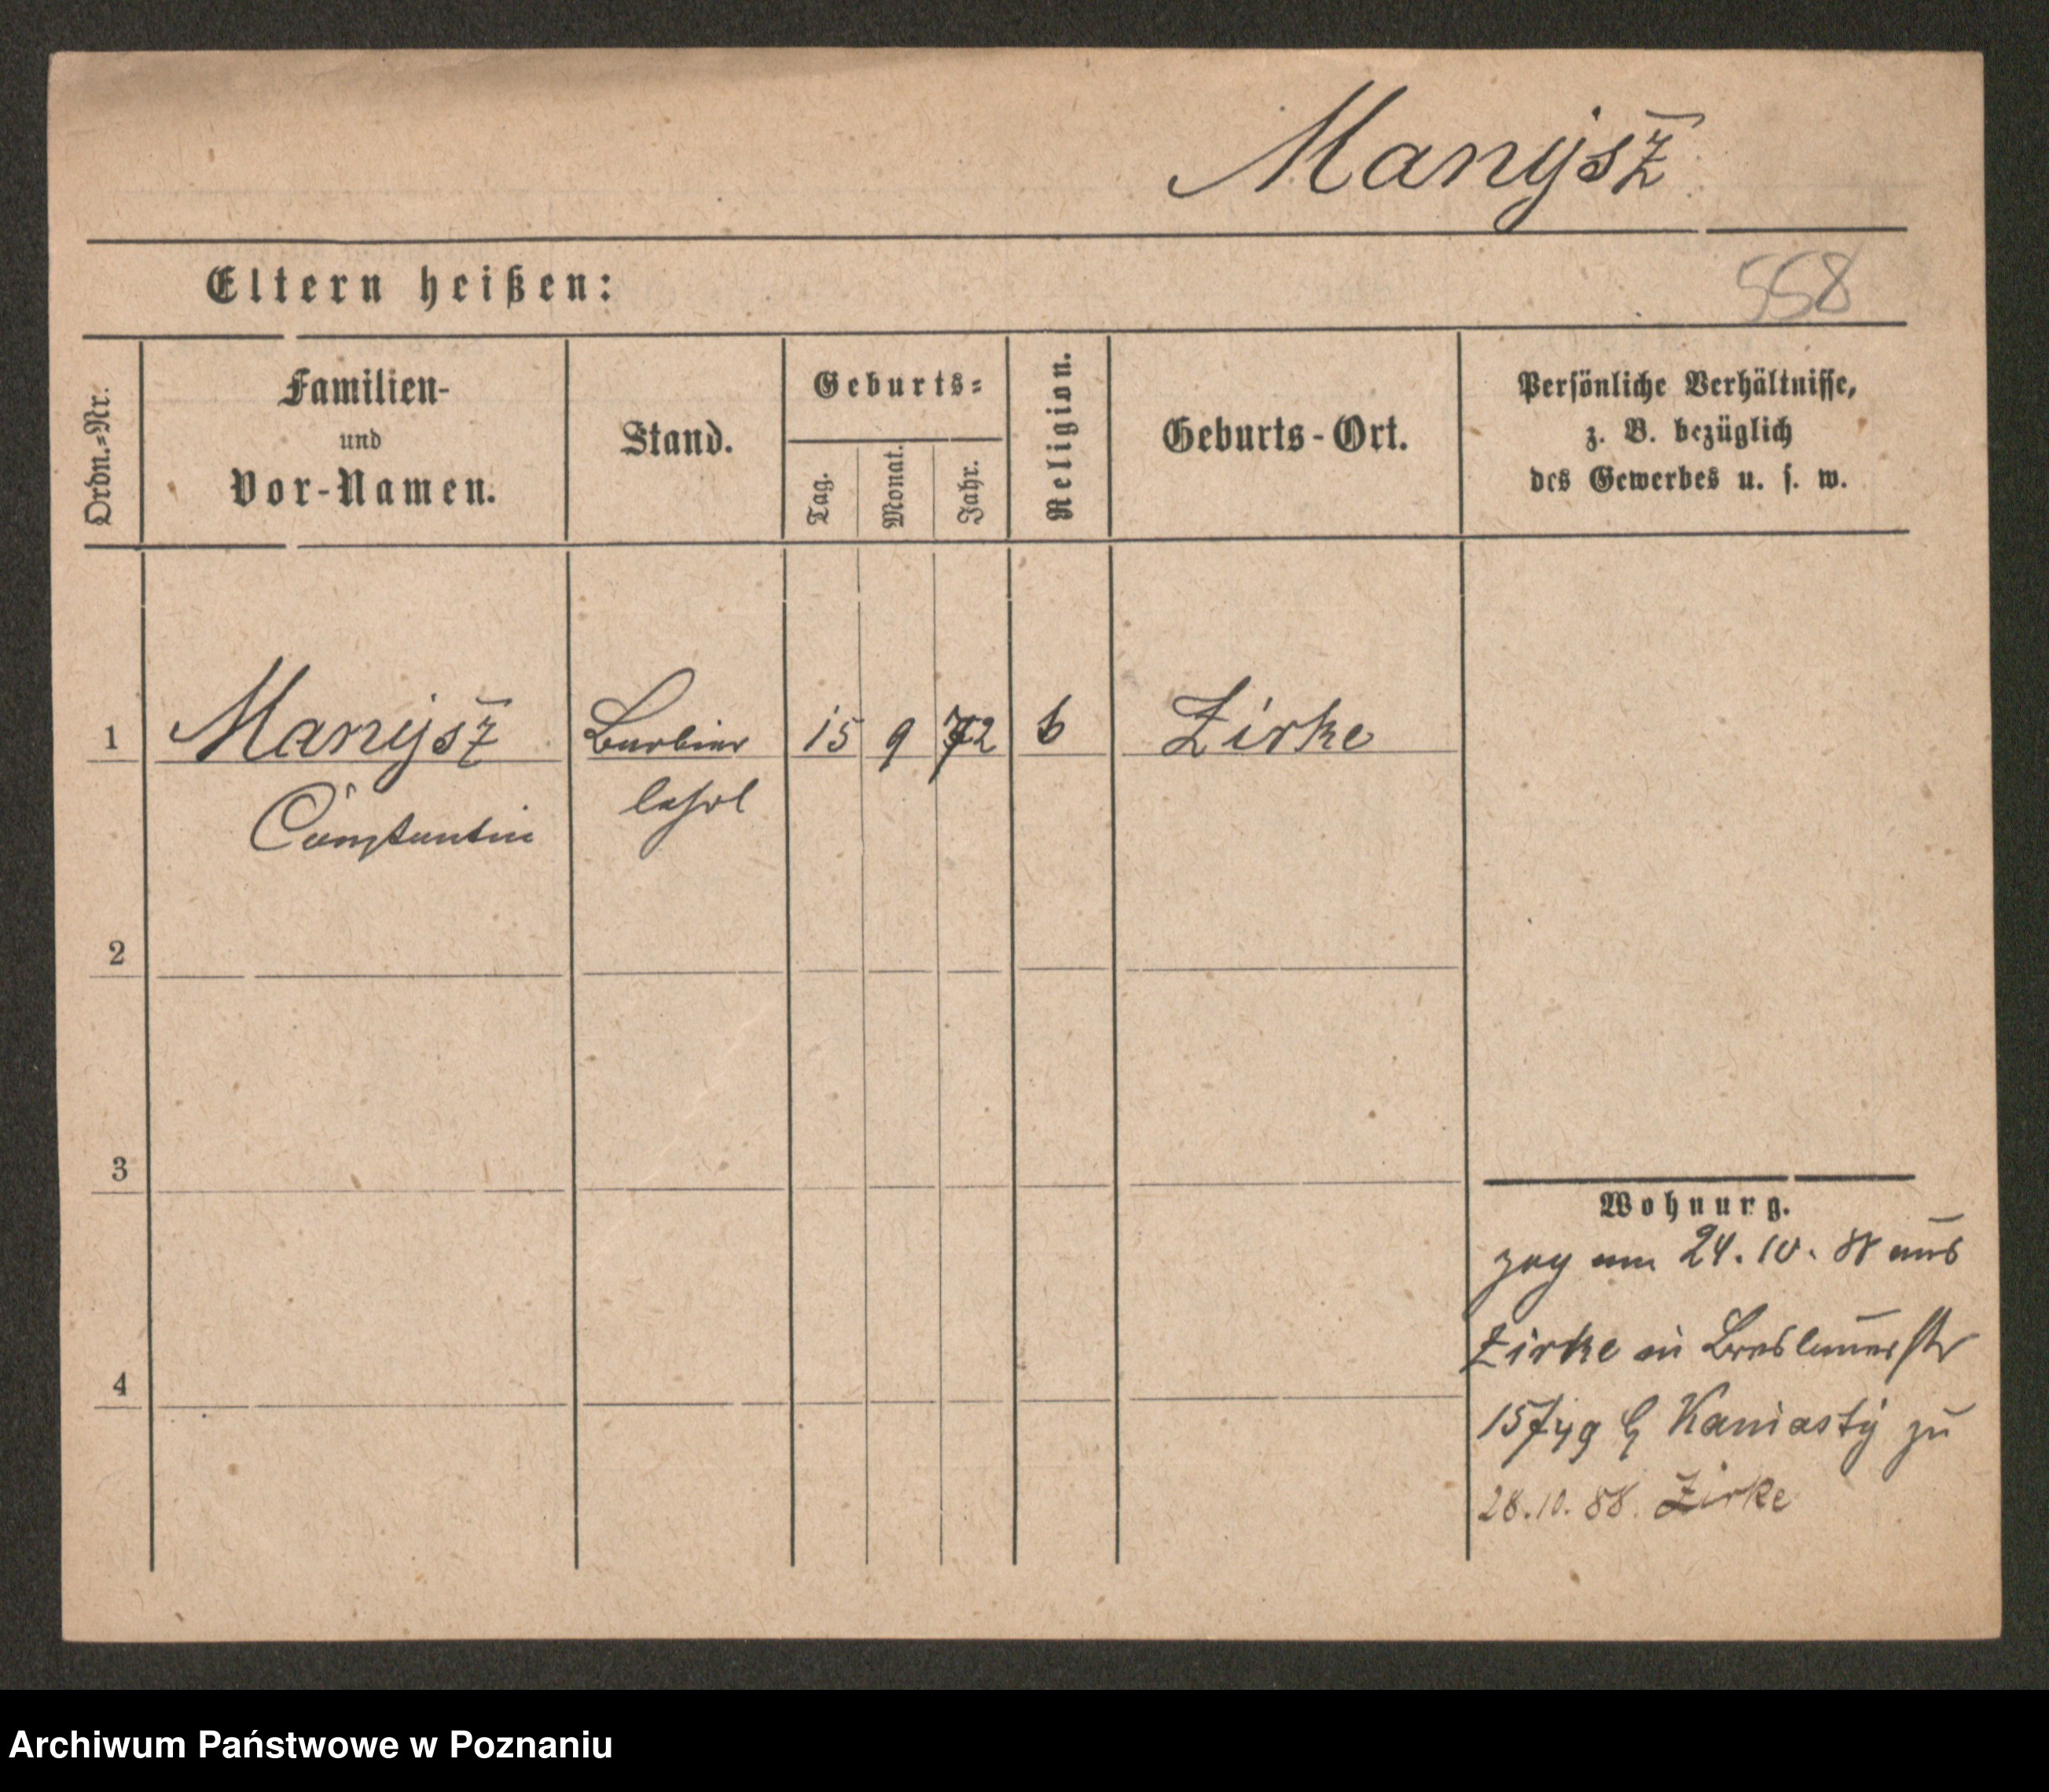 Manyśz
Eltern heißen:
558
Ordn.=Nr.
Familien-
und
Vor-Namen.
Stand.
Geburts=
Tag.
Monat.
Jahr.
Religion.
Geburts-Ort.
Persönliche Verhältnisse,
z. B. bezüglich
des Gewerbes u. s. w.
1 Manyśz Barbier 15 9 72 Zirke
Constantin lehrl
2
3
4
Wohnurg.
zog am 24. 10. 88 aus
Zirke in Breslauerstr
15 Kaniasty zu
28.10.88. Zirke
Archiwum Państwowe w Poznaniu